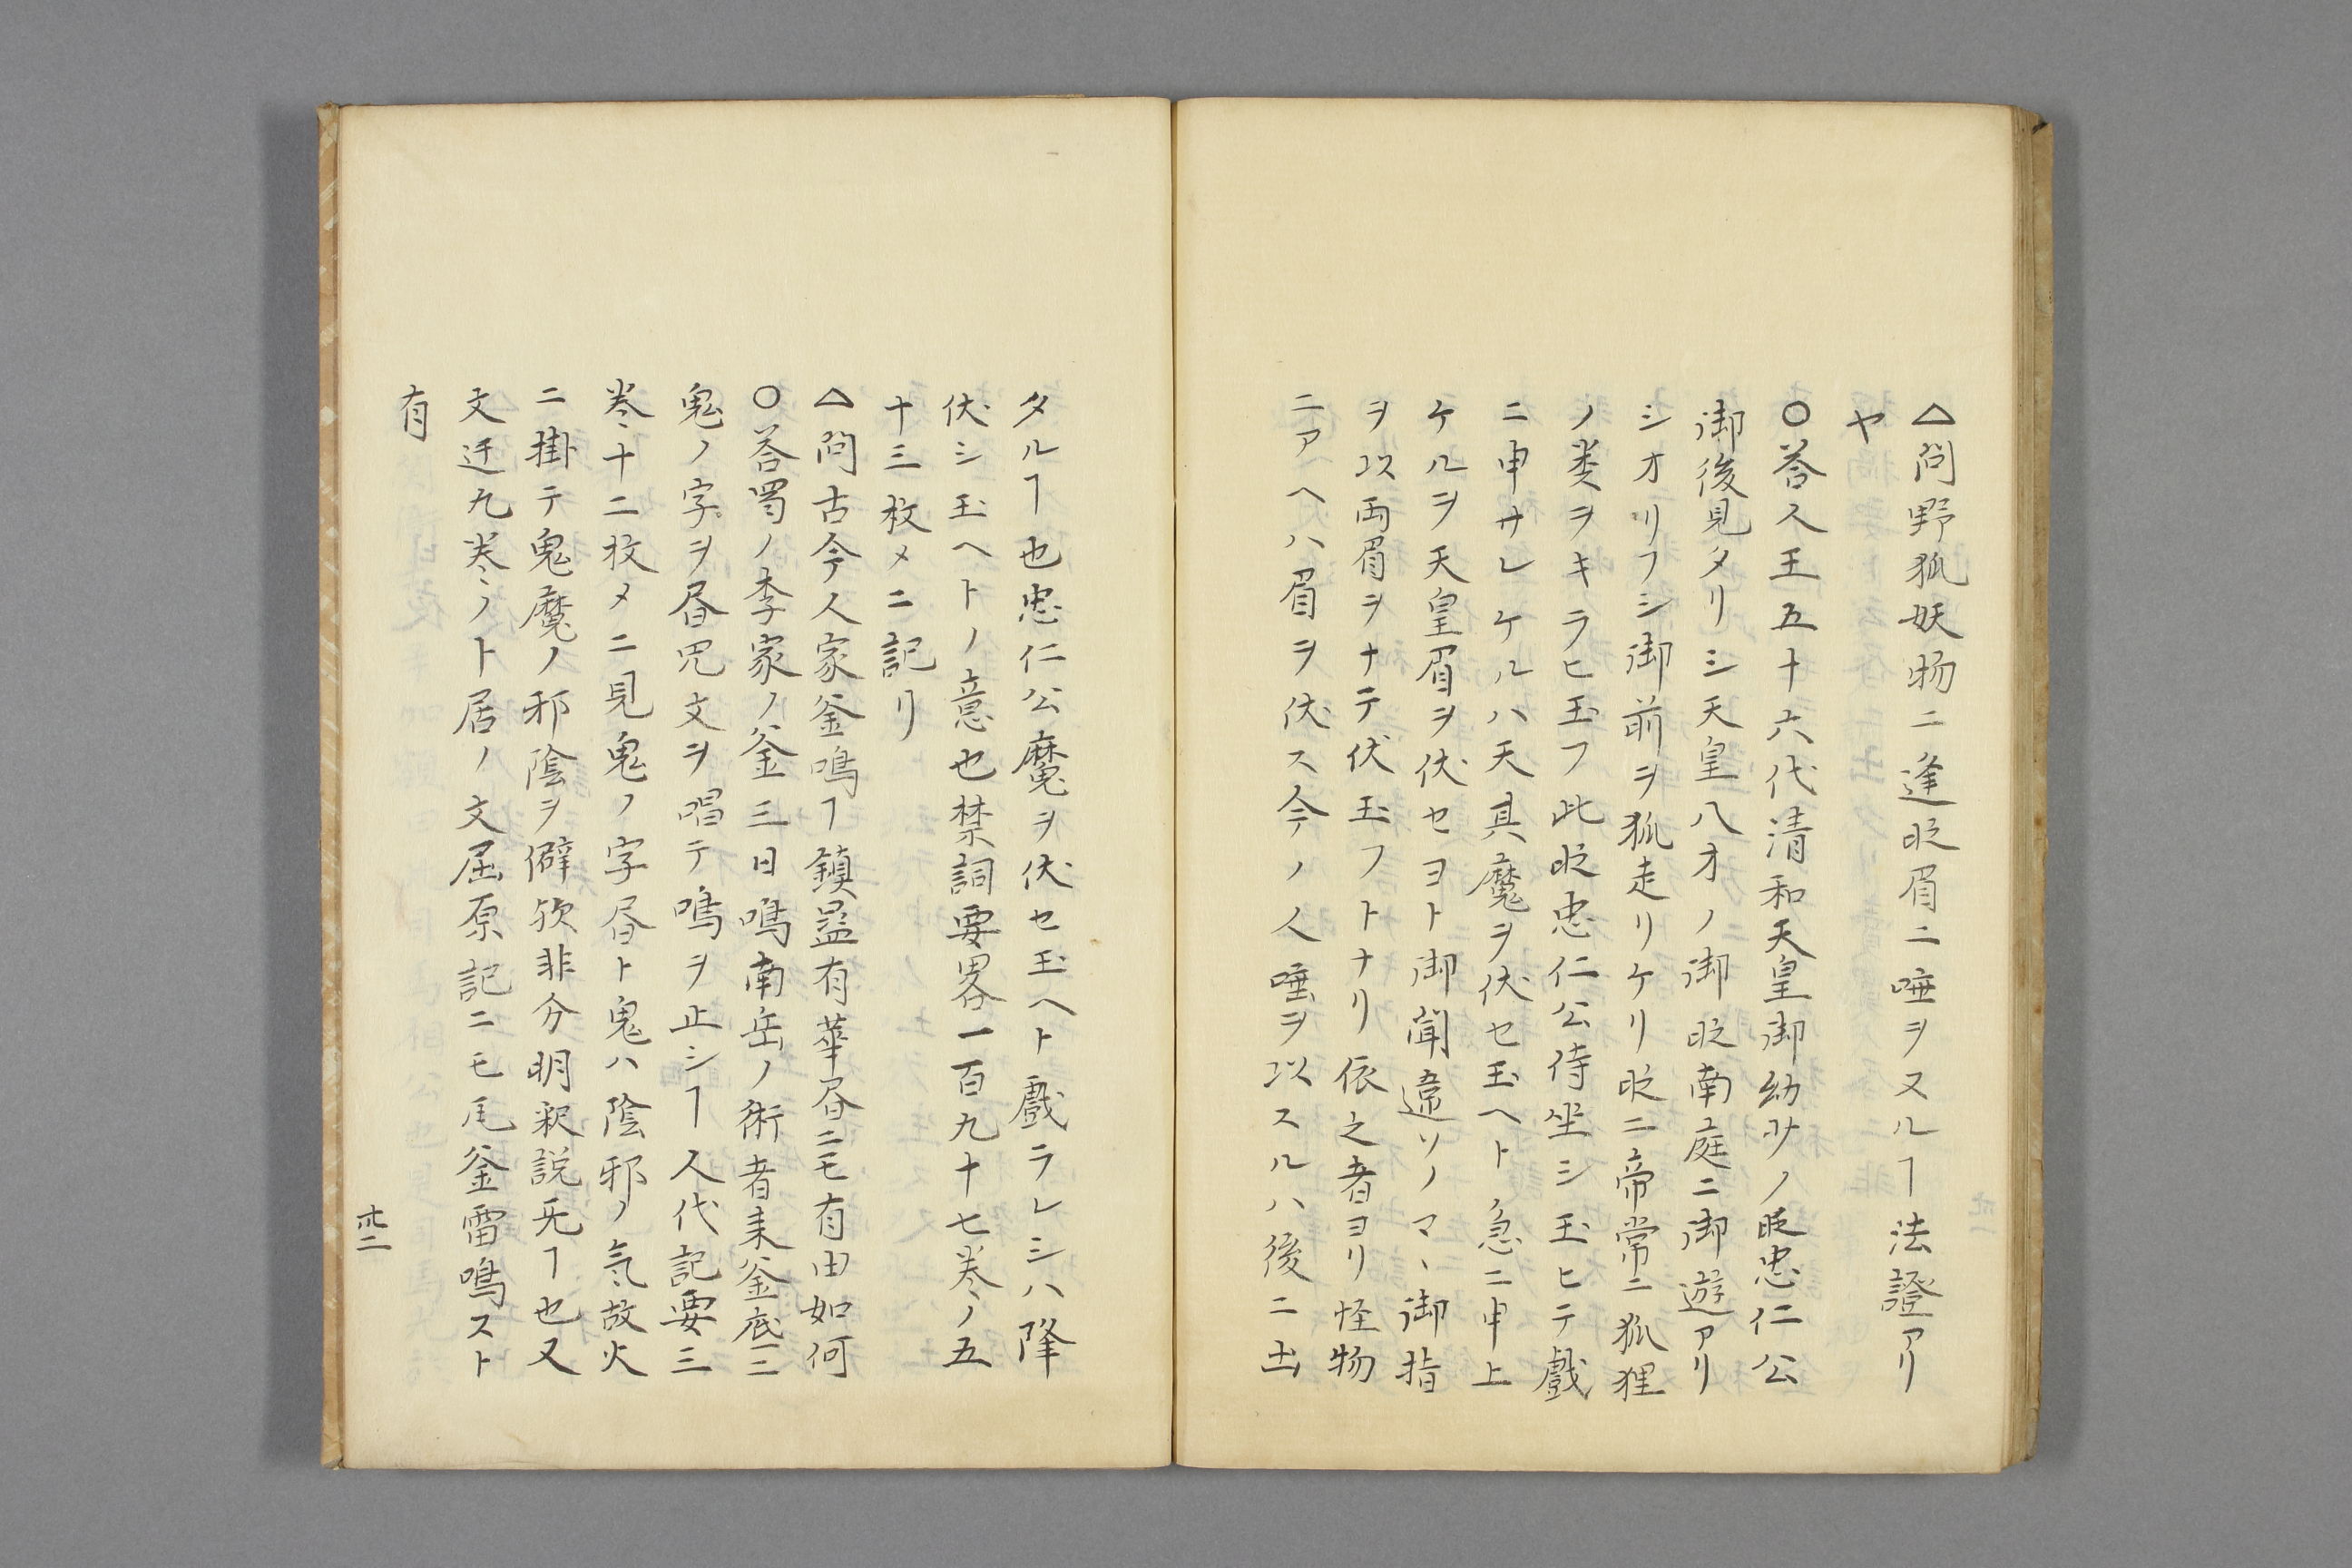 △問野狐妖物ニ逢时眉ニ唾ヲヌルヿ法證アリ
ヤ
○荅人王五十六代清和天皇御幼少ノ时忠仁公
御後見タリシ天皇八才ノ御时南庭ニ御遊アリ
シオリフシ御前ヲ狐走リケリ时ニ帝常ニ狐狸
ノ类ヲキラヒ玉フ此时忠仁公侍坐シ玉ヒテ戲
ニ申サレケルハ天其魔ヲ伏セ玉ヘト急ニ申上
ケルヲ天皇眉ヲ伏セヨト御聞違ソノマヽ御指
ヲ以両眉ヲナテ伏玉フトナリ依之者ヨリ怪物
ニアヘハ眉ヲ伏ス今ノ人唾ヲ以スルハ後ニ出
タルヿ也忠仁公魔ヲ伏セ玉ヘト戲ラレシハ降
伏シ玉ヘトノ意也禁詞要畧一百九十七巻ノ五
十三枚メニ記リ
△問古今人家釜鳴ヿ鎮㬪有華昏ニモ有由如何
○荅蜀ノ李家ノ釜三日鳴南岳ノ術者来釜底ニ
鬼ノ字ヲ昏咒文ヲ唱テ鳴ヲ止シヿ人代記要三
巻十二枚メニ見鬼ノ字昏ト鬼ハ陰邪ノ氣故火
ニ掛テ鬼魔ノ邪陰ヲ僻欤非分明釈説旡ヿ也又
文迁九巻ノト居ノ文屈原記ニモ瓦釜雷鳴スト
有
卄二